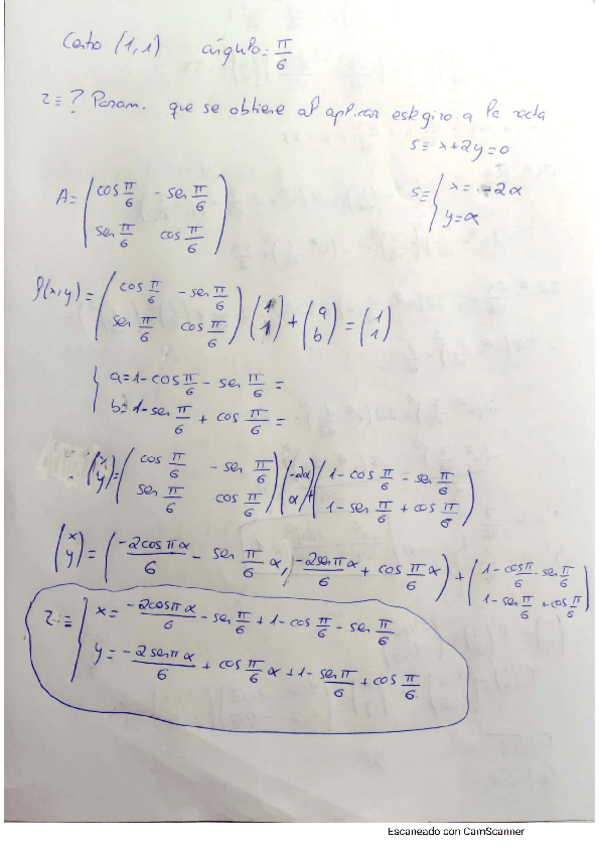 Centro (1,1) ángulo: π/6
r ≡ ? Param. que se obtiene al aplicar este giro a la recta
s ≡ x + 2y = 0
A = ( cos π/6 - sen π/6 ; sen π/6 cos π/6 )
s ≡ { x = -2α ; y = α
f(x,y) = ( cos π/6 - sen π/6 ; sen π/6 cos π/6 ) ( 1 ; 1 ) + ( a ; b ) = ( 1 ; 1 )
{ a = 1 - cos π/6 - sen π/6 =
b = 1 - sen π/6 + cos π/6 =
( x ; y ) = ( cos π/6 - sen π/6 ; sen π/6 cos π/6 ) ( -2α ; α ) + ( 1 - cos π/6 - sen π/6 ; 1 - sen π/6 + cos π/6 )
( x ; y ) = ( -2cos π α/6 - sen π/6 α, -2sen π α/6 + cos π/6 α ) + ( 1 - cos π/6 - sen π/6 ; 1 - sen π/6 + cos π/6 )
r ≡ { x = -2cos π α/6 - sen π/6 + 1 - cos π/6 - sen π/6
y = -2 sen π α/6 + cos π/6 α + 1 - sen π/6 + cos π/6
Escaneado con CamScanner